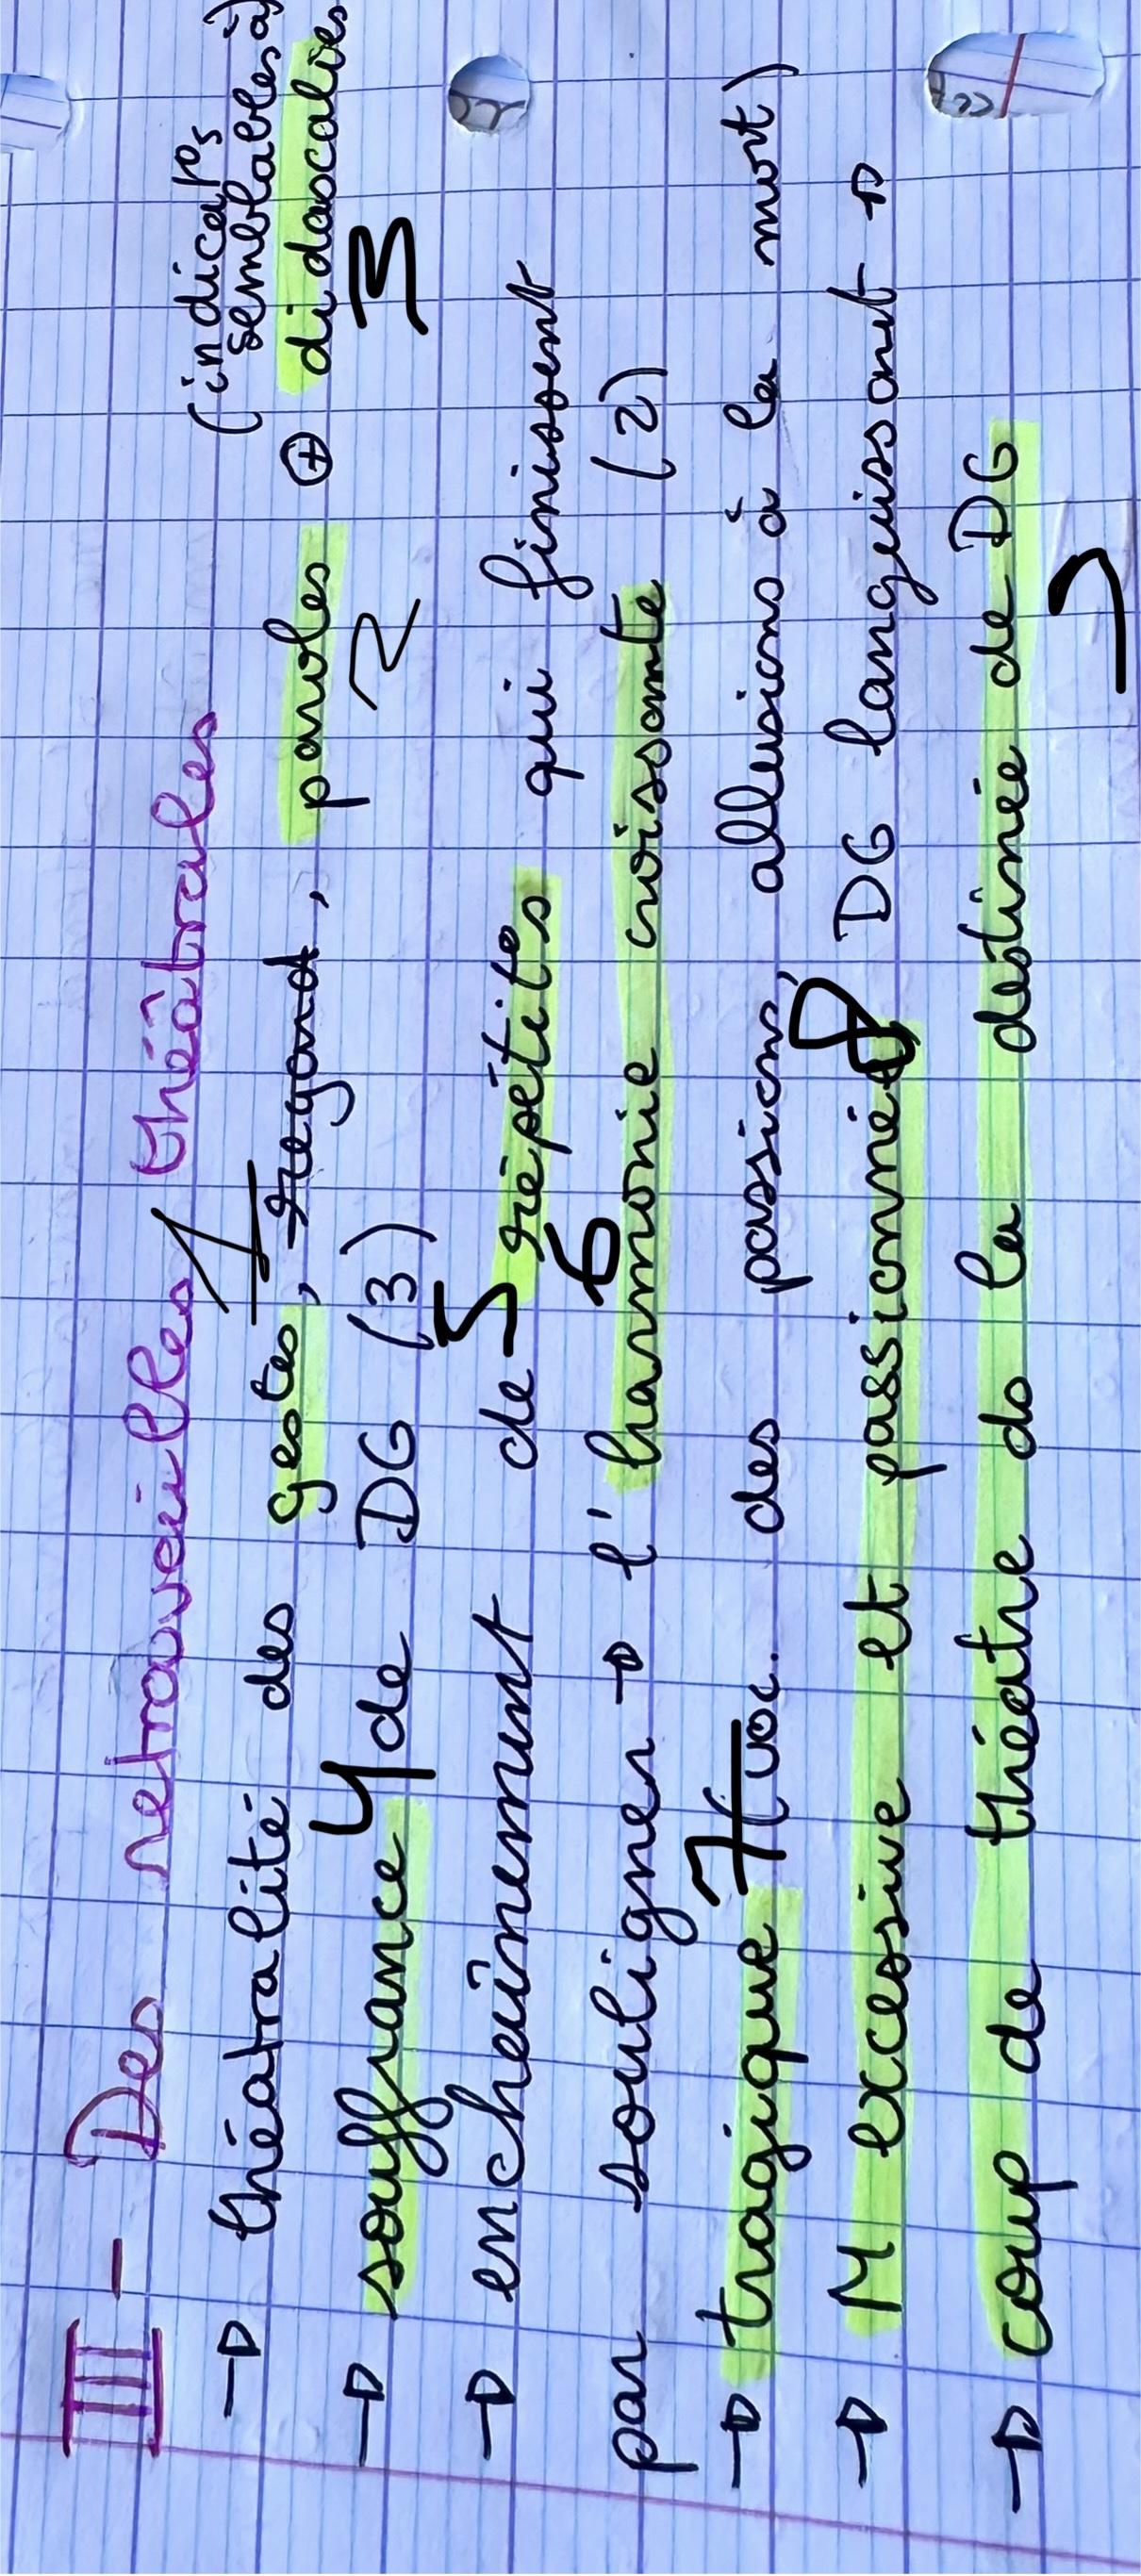 III - Des retravailles théâtrales
(indicat°s semblables à)
→ théatralité des gestes, regard, paroles ⊕ didascalies
1 2 3
→ souffrance 4 de DG (3)
→ encheînement de 5 répétit°s qui finissent
par souligner → l'6 harmonie croissante (2)
→ tragique 7 (voc. des passions, allusions à la mort)
→ M excessive et passionnée 8 DG languissant →
→ coup de théatre do la destinée de DG